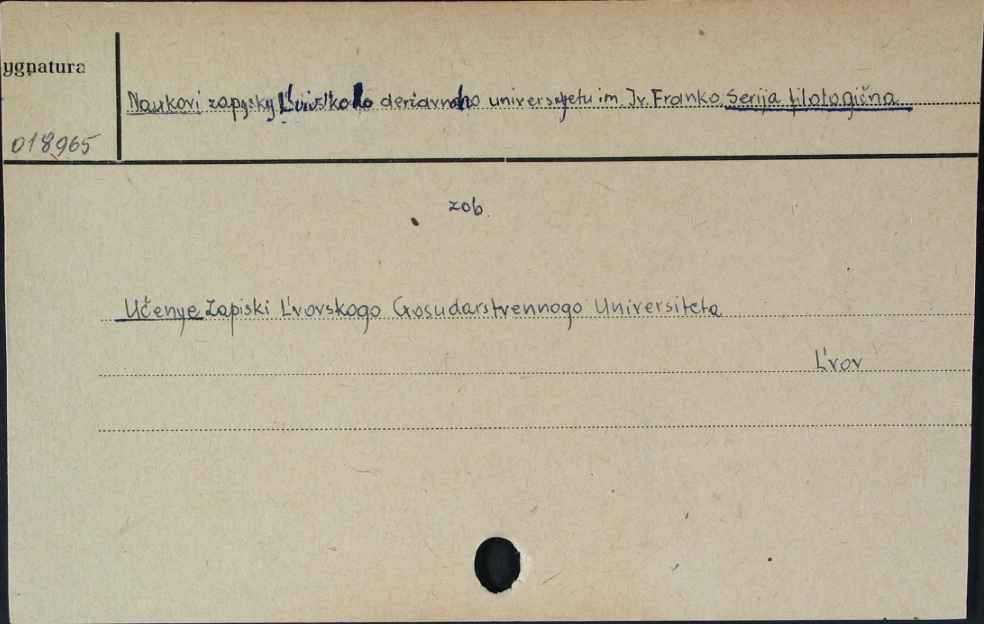 ygnatura
Naukovi zapysky L'vivs'koho deržavnoho universytetu im Iv. Franko Serija filologična
018965
zob.
Učenye Zapiski L'vovskogo Gosudarstvennogo Universiteta
L'vov